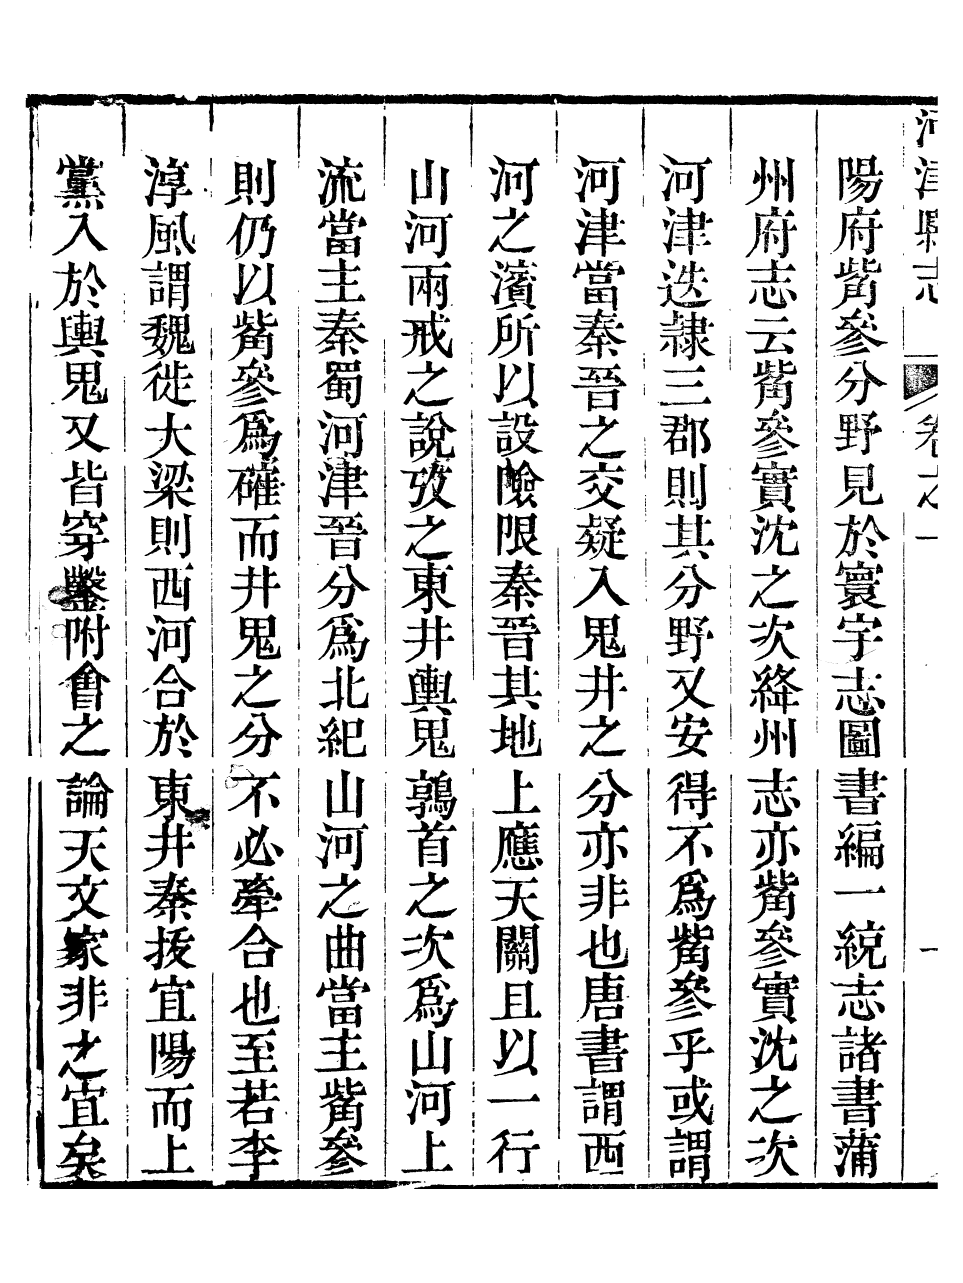 河津縣志 卷之一 一
陽府觜參分野見於寰宇志圖書編一統志諸書蒲
州府志云觜參實沈之次絳州志亦觜參實沈之次
河津迭隸三郡則其分野又安得不爲觜參乎或謂
河津當秦晉之交疑入鬼井之分亦非也唐書謂西
河之濱所以設險限秦晉其地上應天關且以一行
山河兩戒之說攷之東井輿鬼鶉首之次爲山河上
流當主秦蜀河津晉分爲北紀山河之曲當主觜參
則仍以觜參爲確而井鬼之分不必牽合也至若李
淳風謂魏徙大梁則西河合於東井秦拔宜陽而上
黨入於輿鬼又皆穿鑿附會之論天文家非之宜矣